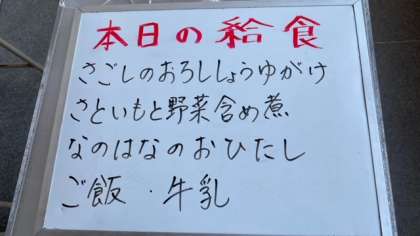 本日の給食
さごしのおろししょうゆがけ
さといもと野菜含め煮
なのはなのおひたし
ご飯・牛乳